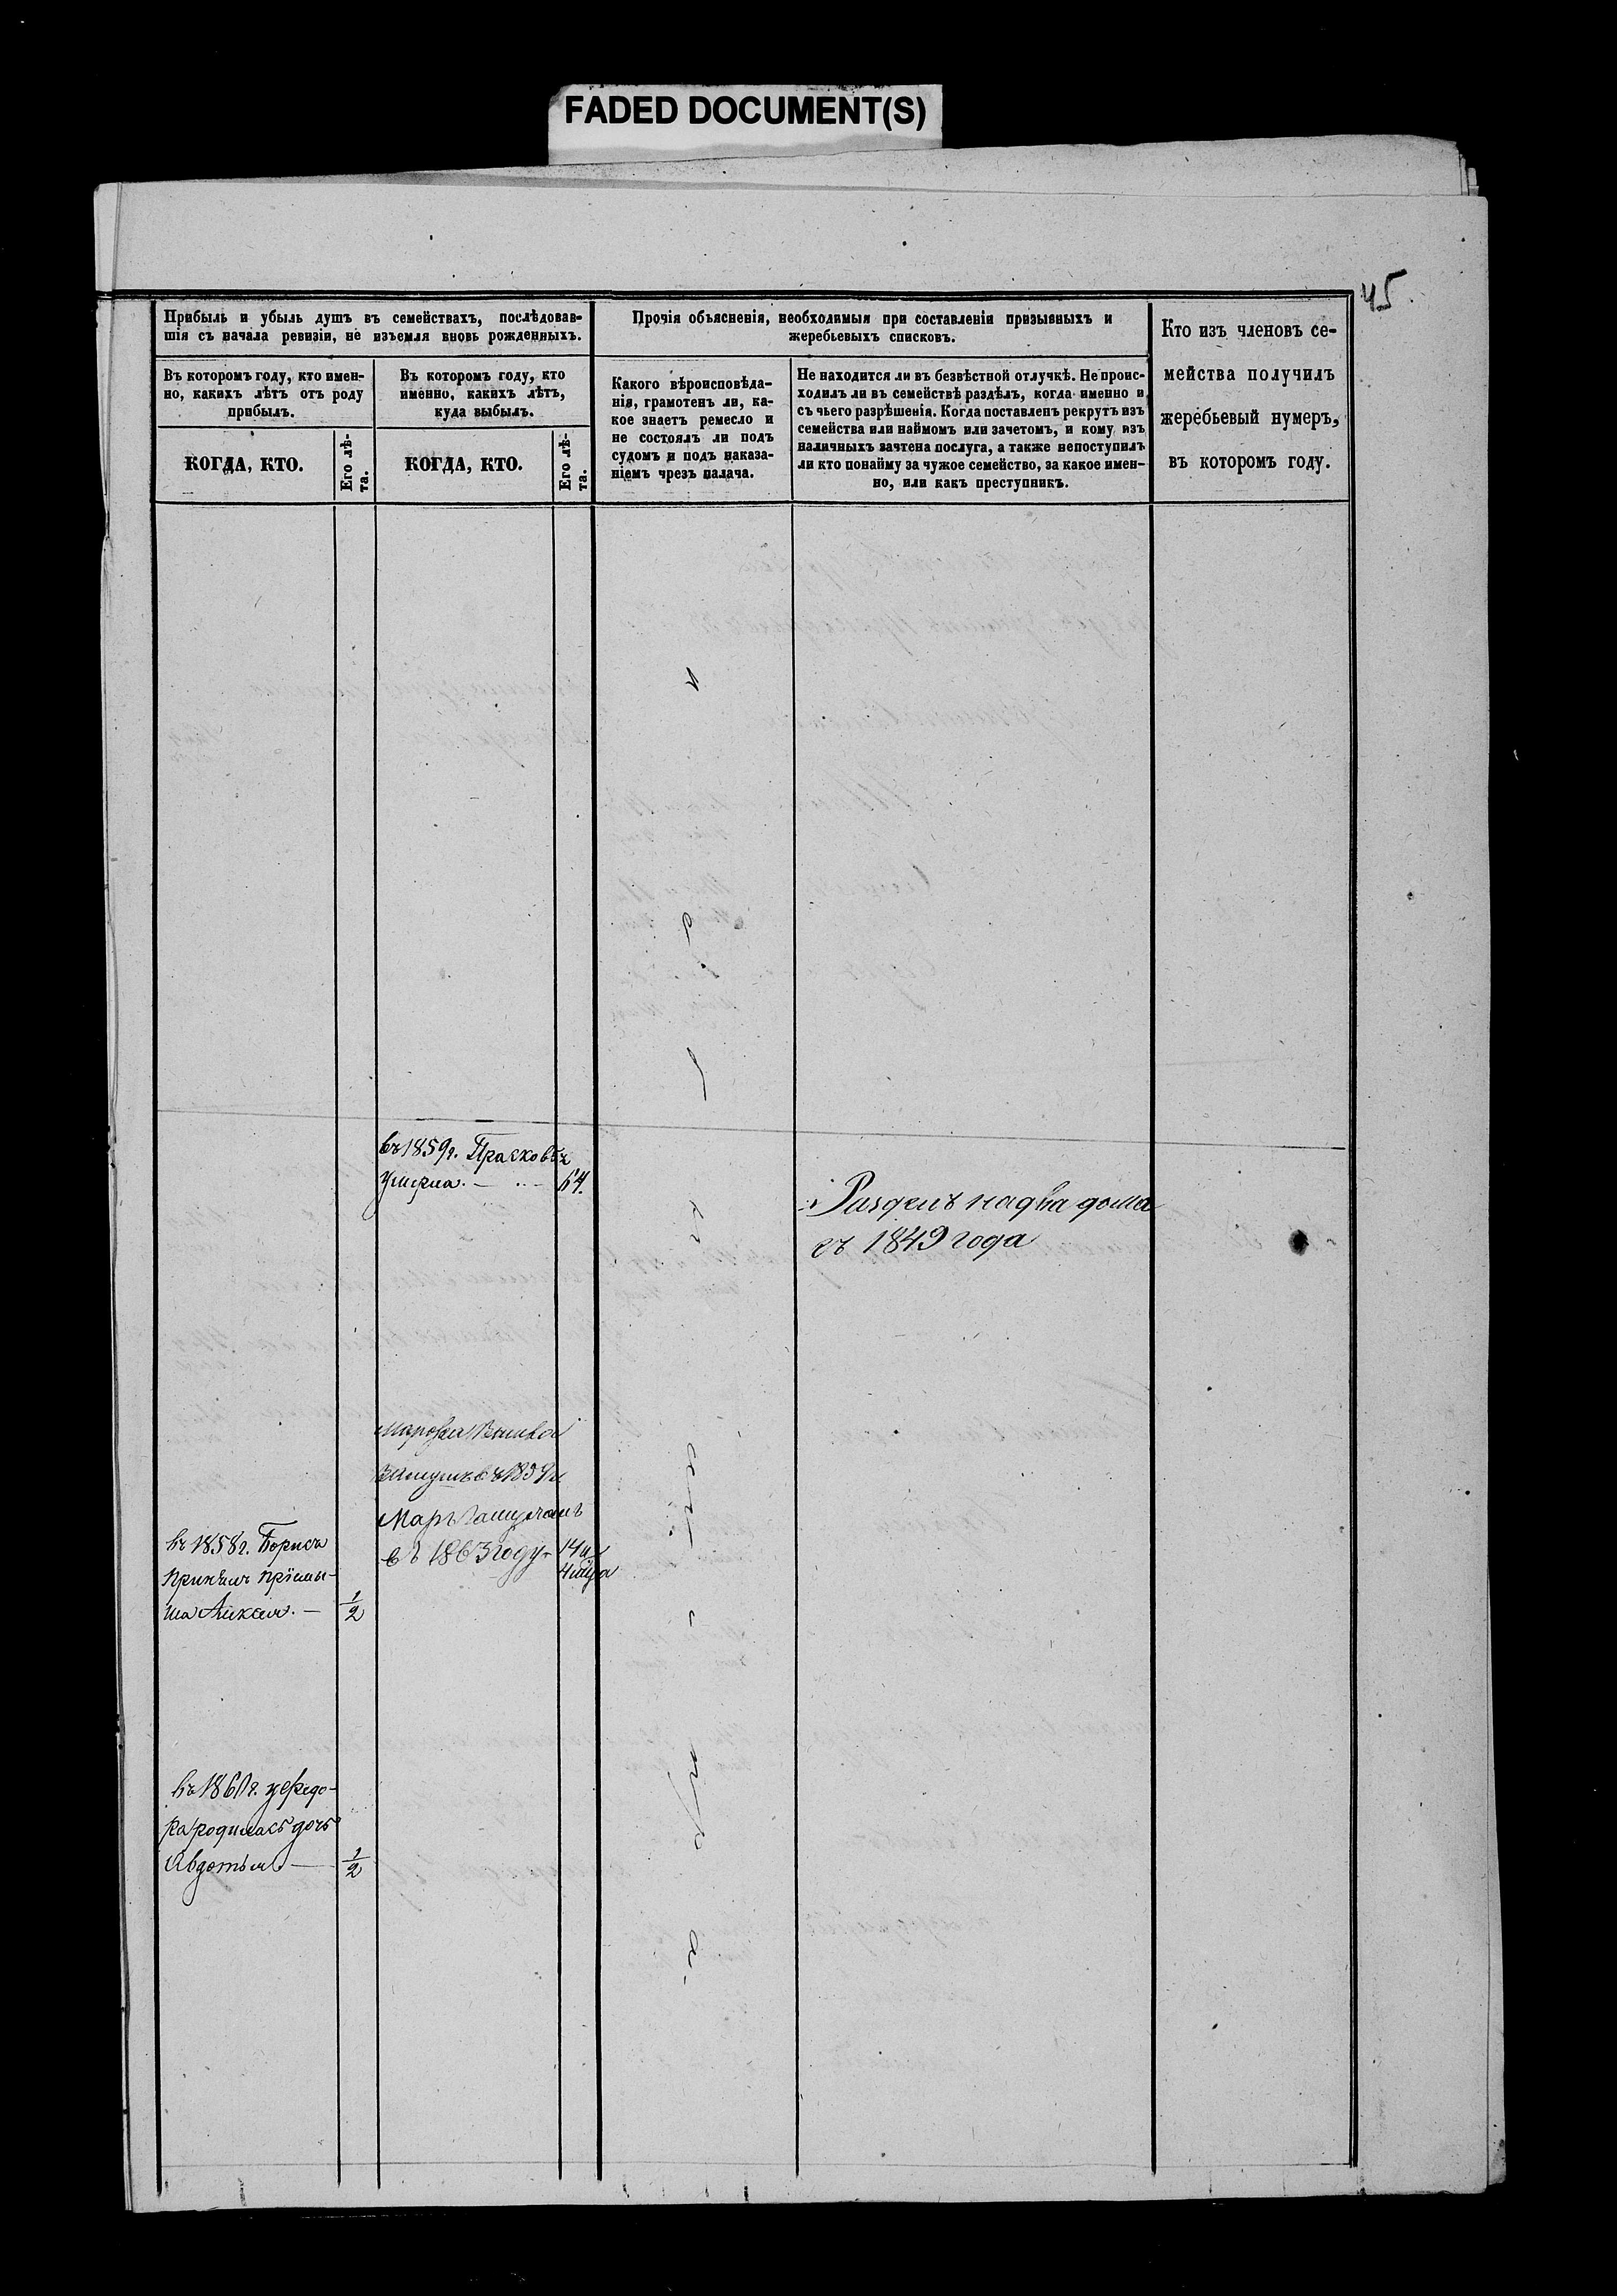 FADED DOCUMENT(S)
45.
Прибыль и убыль душъ въ семействахъ, послѣдовав-
шія съ начала ревизіи, не изъемля вновь рожденныхъ.
Въ которомъ году, кто имен-
но, какихъ лѣтъ отъ роду
прибылъ.
КОГДА, КТО.
Его лѣ-
та.
Въ которомъ году, кто
именно, какихъ лѣтъ,
куда выбылъ.
КОГДА, КТО.
Его лѣ-
та.
Прочія объясненія, необходимыя при составленіи призывныхъ и
жеребьевыхъ списковъ.
Какого вѣроисповѣда-
нія, грамотенъ ли, ка-
кое знаетъ ремесло и
не состоялъ ли подъ
судомъ и подъ наказа-
ніемъ чрезъ палача.
Не находится ли въ безвѣстной отлучкѣ. Не проис-
ходилъ ли въ семействѣ раздѣлъ, когда именно и
съ чьего разрѣшенія. Когда поставленъ рекрутъ изъ
семейства или наймомъ или зачетомъ, и кому изъ
наличныхъ зачтена послуга, а также непоступилъ
ли кто понайму за чужое семейство, за какое имен-
но, или какъ преступникъ.
Кто изъ членовъ се-
мейства получилъ
жеребьевый нумеръ,
въ которомъ году.
въ 1859г. Прасковья
умерла. — 64.
Разделъ на два дома
съ 1849 года
въ 1863 году 14 и
въ 1858г. Бориса
1/2
въ 1861г. у Федо-
ра родилась дочь
Авдотья. — 1/2